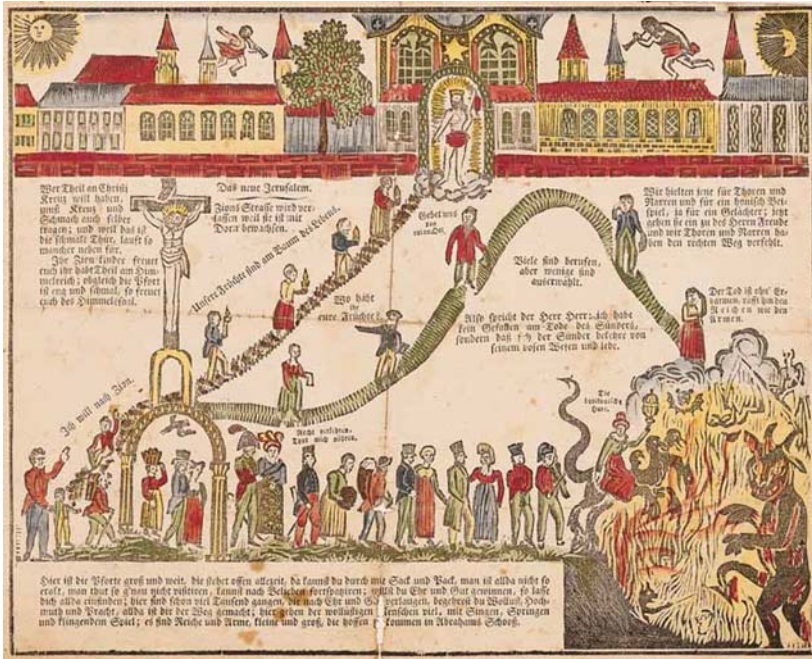 Wer Theil an Christi
Kreuz will haben,
muß Kreuz und
Schmach auch selber
tragen; und weil das ist
die schmale Thür, lauft so
mancher neben für.
Ihr Zion kinder freuet
euch ihr habt Theil am Him-
melreich; obgleich die Pfort
ist eng und schmal, so freuet
euch des
Das neue Jerusalem.
Zions Strasse wird ver-
lassen weil sie ist mit
Dorn bewachsen.
Unsere Früchte sind am Baum des Lebens.
Gebet uns
von
Wo habt
ihr
eure Früchte?
Viele sind berufen,
aber wenige sind
auserwählt.
Wir hielten jene für Thoren und
Narren und für ein hönisch Bei-
spiel, ja für ein Gelächter; jetzt
gehen sie ein zu des Herren Freude
und wir Thoren und Narren ha-
ben den rechten Weg verfehlt.
Also spricht der Herr Herr: ich habe
kein Gefallen am Tode des Sünders,
sondern daß sich der Sünder bekehre von
seinem bösen Wesen und lebe.
Der Tod ist ohn' Er-
barmen, rafft hin den
Reichen wie den
Armen.
Ich will nach Zion.
Recht
Thut mich
Die
babilonische
Hure.
Hier ist die Pforte groß und weit, die stehet offen allezeit, da kannst du durch mit Sack und Pack, man ist allda nicht so
exakt, man thut so g'nau nicht visitiren, kannst nach Belieben fortspaziren; willst du Ehr und Gut gewinnen, so lasse
dich allda einfinden; hier sind schon viel Tausend gangen, die nach Ehr und Gut verlangen, begehrest du Wollust, Hoch-
muth und Pracht, allda ist dir der Weg gemacht; hier gehen der wollüstigen Menschen viel, mit Singen, Springen
und klingendem Spiel; es sind Reiche und Arme, kleine und groß, die hoffen zu kommen in Abrahams Schooß.